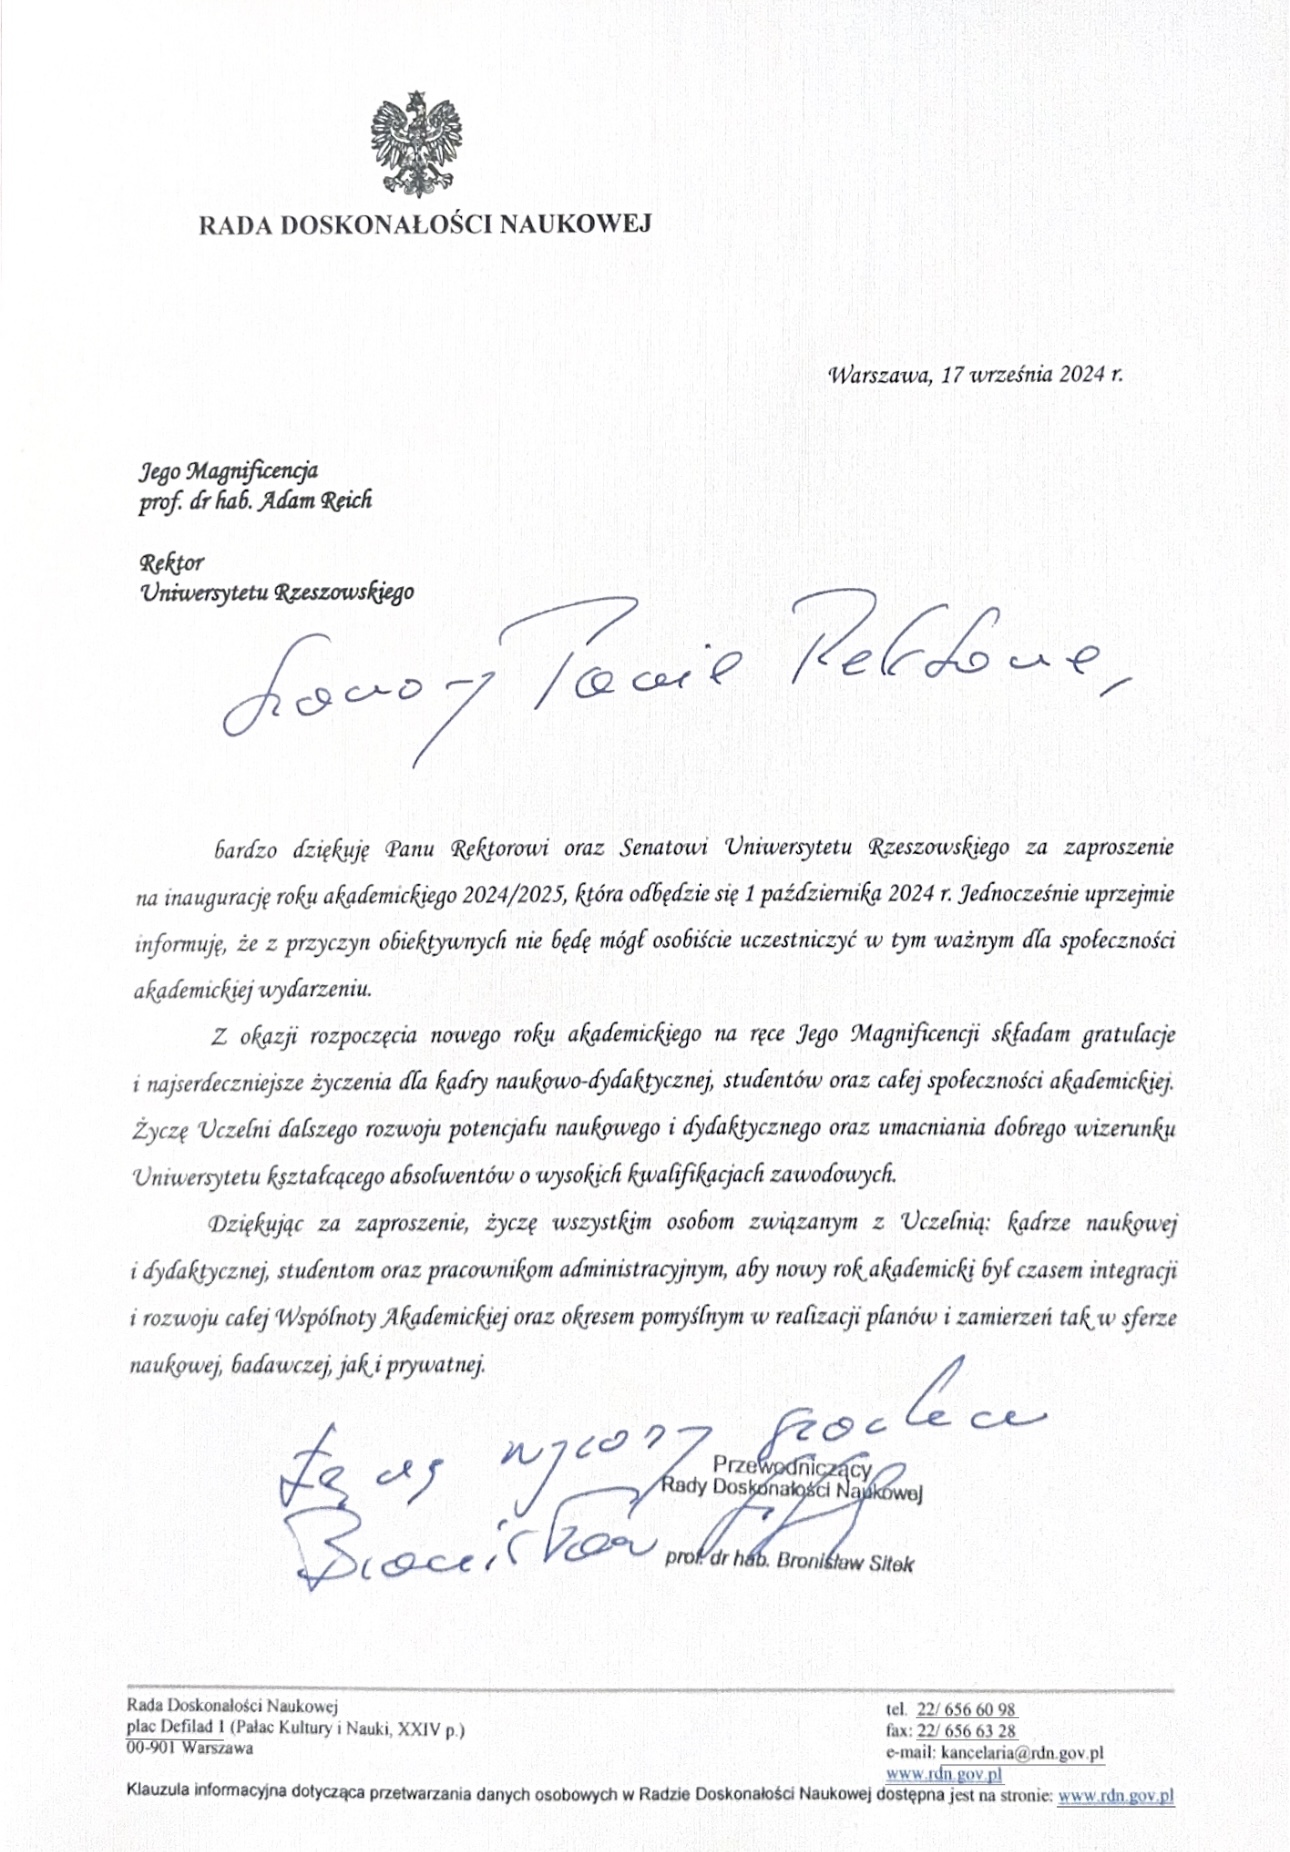 RADA DOSKONAŁOŚCI NAUKOWEJ
Warszawa, 17 września 2024 r.
Jego Magnificencja
prof. dr hab. Adam Reich
Rektor
Uniwersytetu Rzeszowskiego
Szanowny Panie Rektorze,
bardzo dziękuję Panu Rektorowi oraz Senatowi Uniwersytetu Rzeszowskiego za zaproszenie
na inaugurację roku akademickiego 2024/2025, która odbędzie się 1 października 2024 r. Jednocześnie uprzejmie
informuję, że z przyczyn obiektywnych nie będę mógł osobiście uczestniczyć w tym ważnym dla społeczności
akademickiej wydarzeniu.
Z okazji rozpoczęcia nowego roku akademickiego na ręce Jego Magnificencji składam gratulacje
i najserdeczniejsze życzenia dla kadry naukowo-dydaktycznej, studentów oraz całej społeczności akademickiej.
Życzę Uczelni dalszego rozwoju potencjału naukowego i dydaktycznego oraz umacniania dobrego wizerunku
Uniwersytetu kształcącego absolwentów o wysokich kwalifikacjach zawodowych.
Dziękując za zaproszenie, życzę wszystkim osobom związanym z Uczelnią: kadrze naukowej
i dydaktycznej, studentom oraz pracownikom administracyjnym, aby nowy rok akademicki był czasem integracji
i rozwoju całej Wspólnoty Akademickiej oraz okresem pomyślnym w realizacji planów i zamierzeń tak w sferze
naukowej, badawczej, jak i prywatnej.
Łączę wyrazy szacunku
Przewodniczący
Rady Doskonałości Naukowej
Bronisław
prof. dr hab. Bronisław Sitek
Rada Doskonałości Naukowej
plac Defilad 1 (Pałac Kultury i Nauki, XXIV p.)
00-901 Warszawa
tel. 22/ 656 60 98
fax: 22/ 656 63 28
e-mail: kancelaria@rdn.gov.pl
www.rdn.gov.pl
Klauzula informacyjna dotycząca przetwarzania danych osobowych w Radzie Doskonałości Naukowej dostępna jest na stronie: www.rdn.gov.pl